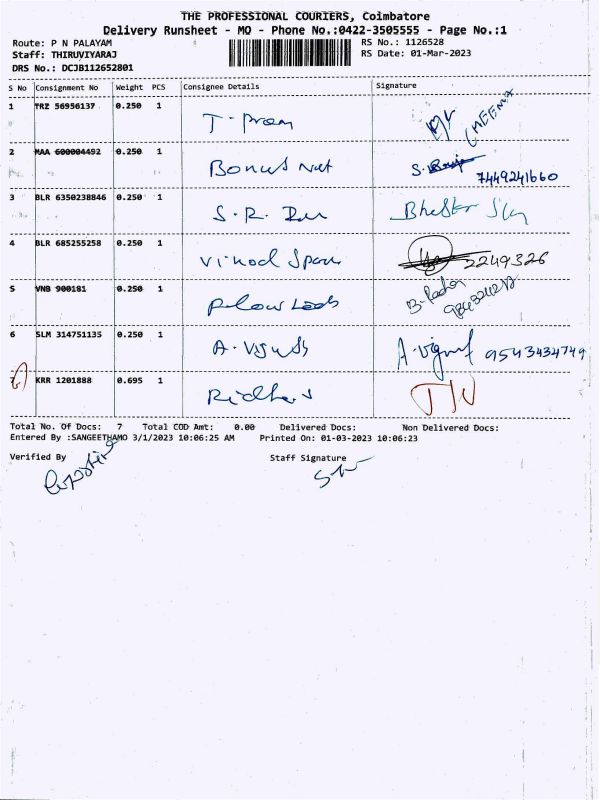 THE PROFESSIONAL COURIERS, Coimbatore
Delivery Runsheet - MO - Phone No.:0422-3505555 - Page No.:1
Route: P N PALAYAM RS No.: 1126528
Staff: THIRUVIYARAJ RS Date: 01-Mar-2023
DRS No.: DCJB112652801
S No Consignment No Weight PCS Consignee Details Signature
1 TRZ 56956137 0.250 1 T. Prem MEENA
2 MAA 600004492 0.250 1 Bonus Nut S.
7449241660
3 BLR 6350238846 0.250 1 S. R.
4 BLR 685255258 0.250 1 Vinod 2249326
5 VNB 900181 0.250 1
6 SLM 314751135 0.250 1 A. A. 9543434749
7 KRR 1201888 0.695 1
Total No. Of Docs: 7 Total COD Amt: 0.00 Delivered Docs: Non Delivered Docs:
Entered By :SANGEETHAMO 3/1/2023 10:06:25 AM Printed On: 01-03-2023 10:06:23
Verified By Staff Signature